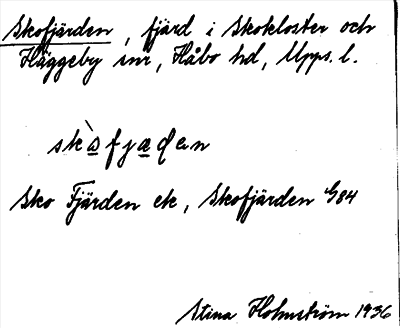 Skofjärden, fjärd i Skokloster och
Häggeby snr, Håbo hd, Upps. l.
skòfjaḍen
Sko Fjärden ek, Skofjärden G84
Stina Holmström 1936